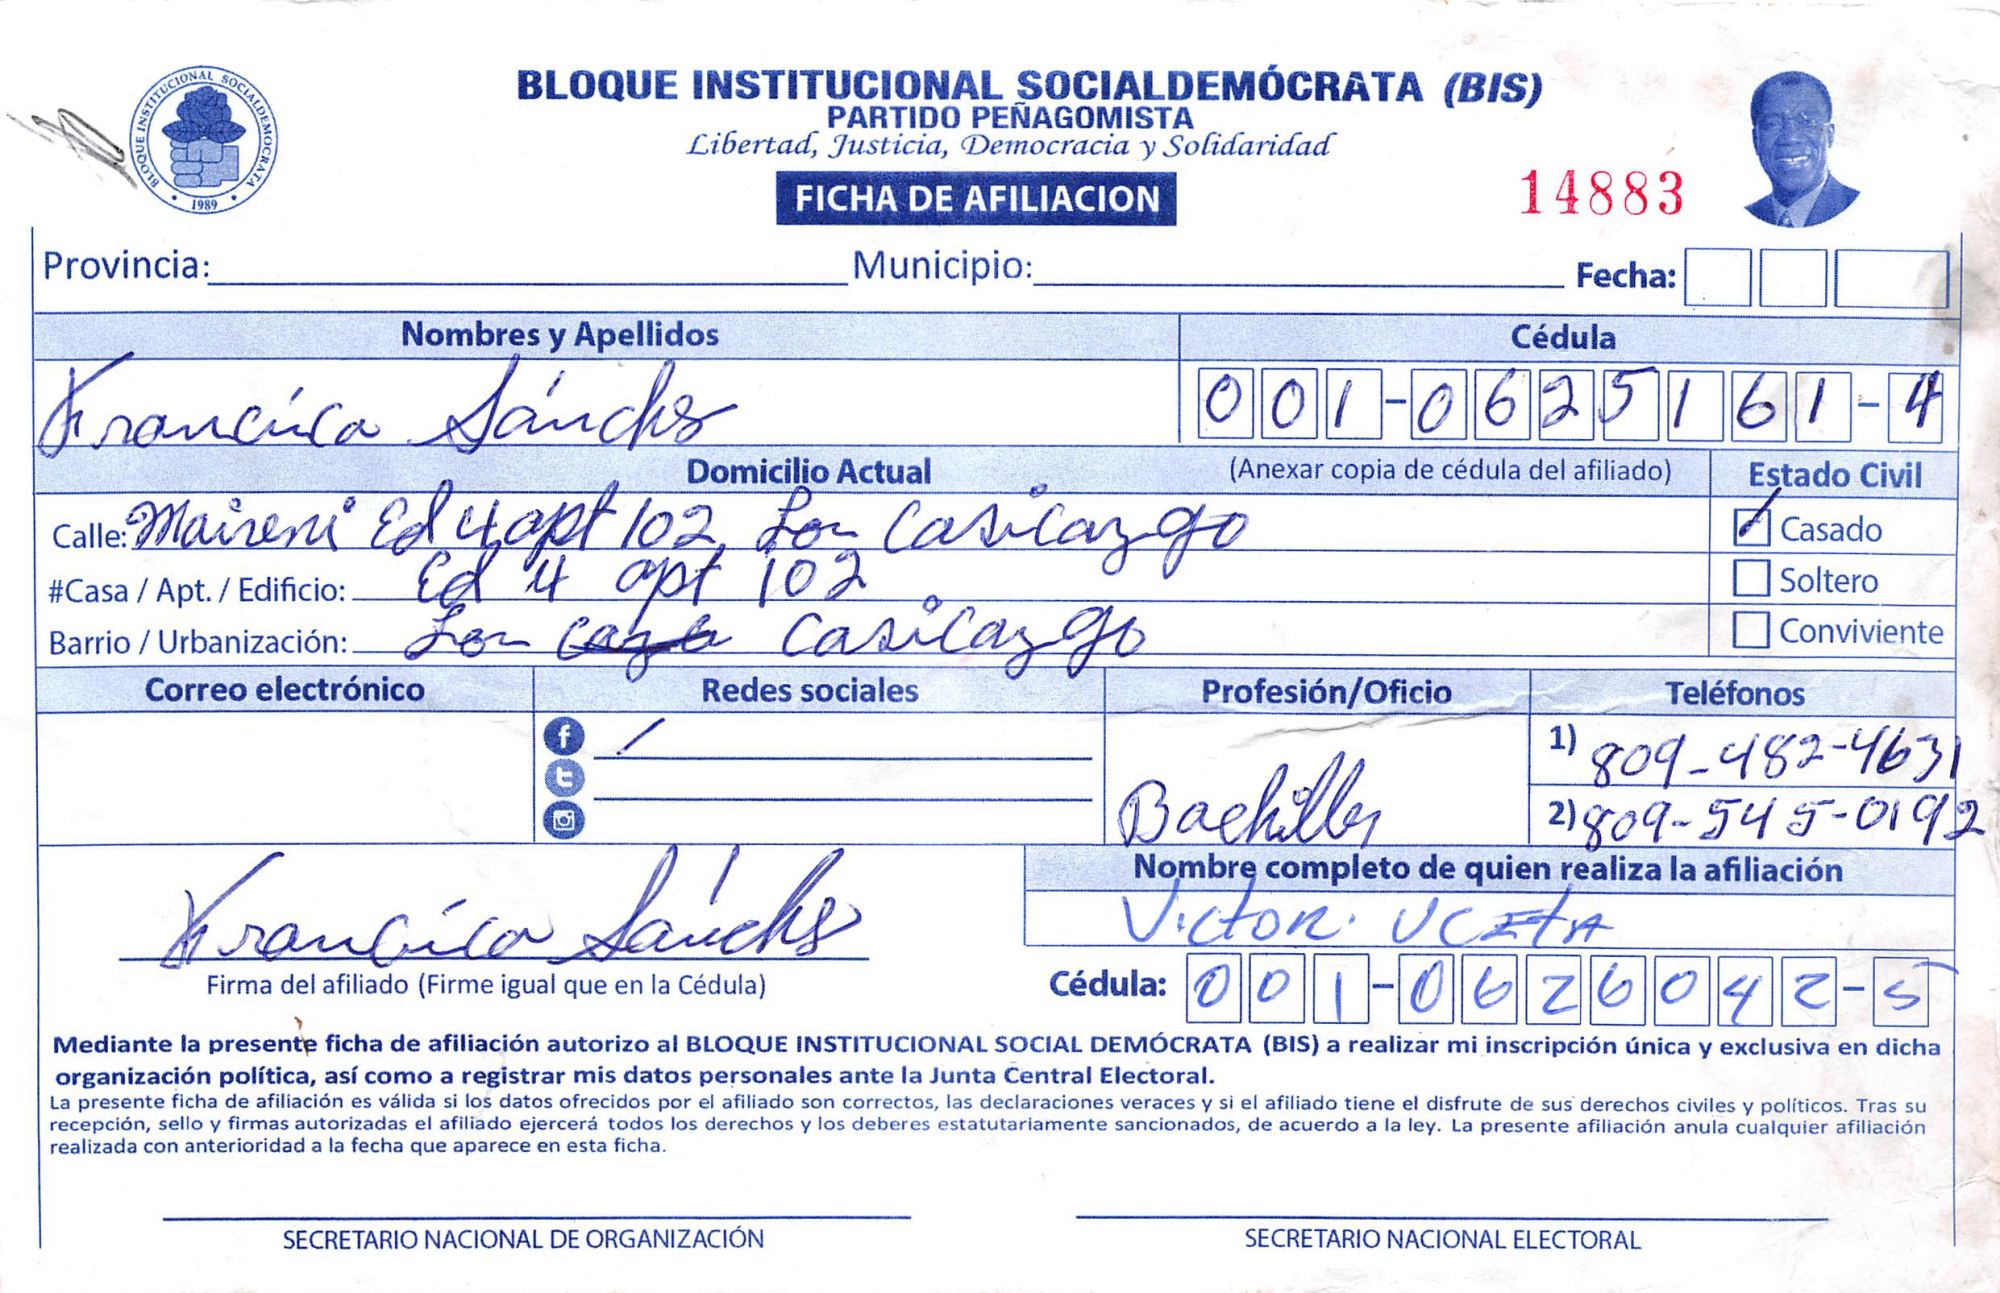 BLOQUE INSTITUCIONAL SOCIALDEMOCRATA
1989
BLOQUE INSTITUCIONAL SOCIALDEMÓCRATA (BIS)
PARTIDO PEÑAGOMISTA
Libertad, Justicia, Democracia y Solidaridad
FICHA DE AFILIACION
14883
Provincia: Municipio: Fecha:
Nombres y Apellidos Cédula
Sánchs 001-0625161-4
Domicilio Actual (Anexar copia de cédula del afiliado) Estado Civil
Calle: Maireni Ed 4 apt 102 Casicazgo Casado
#Casa / Apt. / Edificio: Ed 4 apt 102 Soltero
Barrio / Urbanización: Casicazgo Conviviente
Correo electrónico Redes sociales Profesión/Oficio Teléfonos
1) 809-482-4631
Bachiller 2) 809-545-0192
Nombre completo de quien realiza la afiliación
Sánchs Victor. Uceta
Firma del afiliado (Firme igual que en la Cédula) Cédula: 001-0626042-5
Mediante la presente ficha de afiliación autorizo al BLOQUE INSTITUCIONAL SOCIAL DEMÓCRATA (BIS) a realizar mi inscripción única y exclusiva en dicha
organización política, así como a registrar mis datos personales ante la Junta Central Electoral.
La presente ficha de afiliación es válida si los datos ofrecidos por el afiliado son correctos, las declaraciones veraces y si el afiliado tiene el disfrute de sus derechos civiles y políticos. Tras su
recepción, sello y firmas autorizadas el afiliado ejercerá todos los derechos y los deberes estatutariamente sancionados, de acuerdo a la ley. La presente afiliación anula cualquier afiliación
realizada con anterioridad a la fecha que aparece en esta ficha.
SECRETARIO NACIONAL DE ORGANIZACIÓN SECRETARIO NACIONAL ELECTORAL